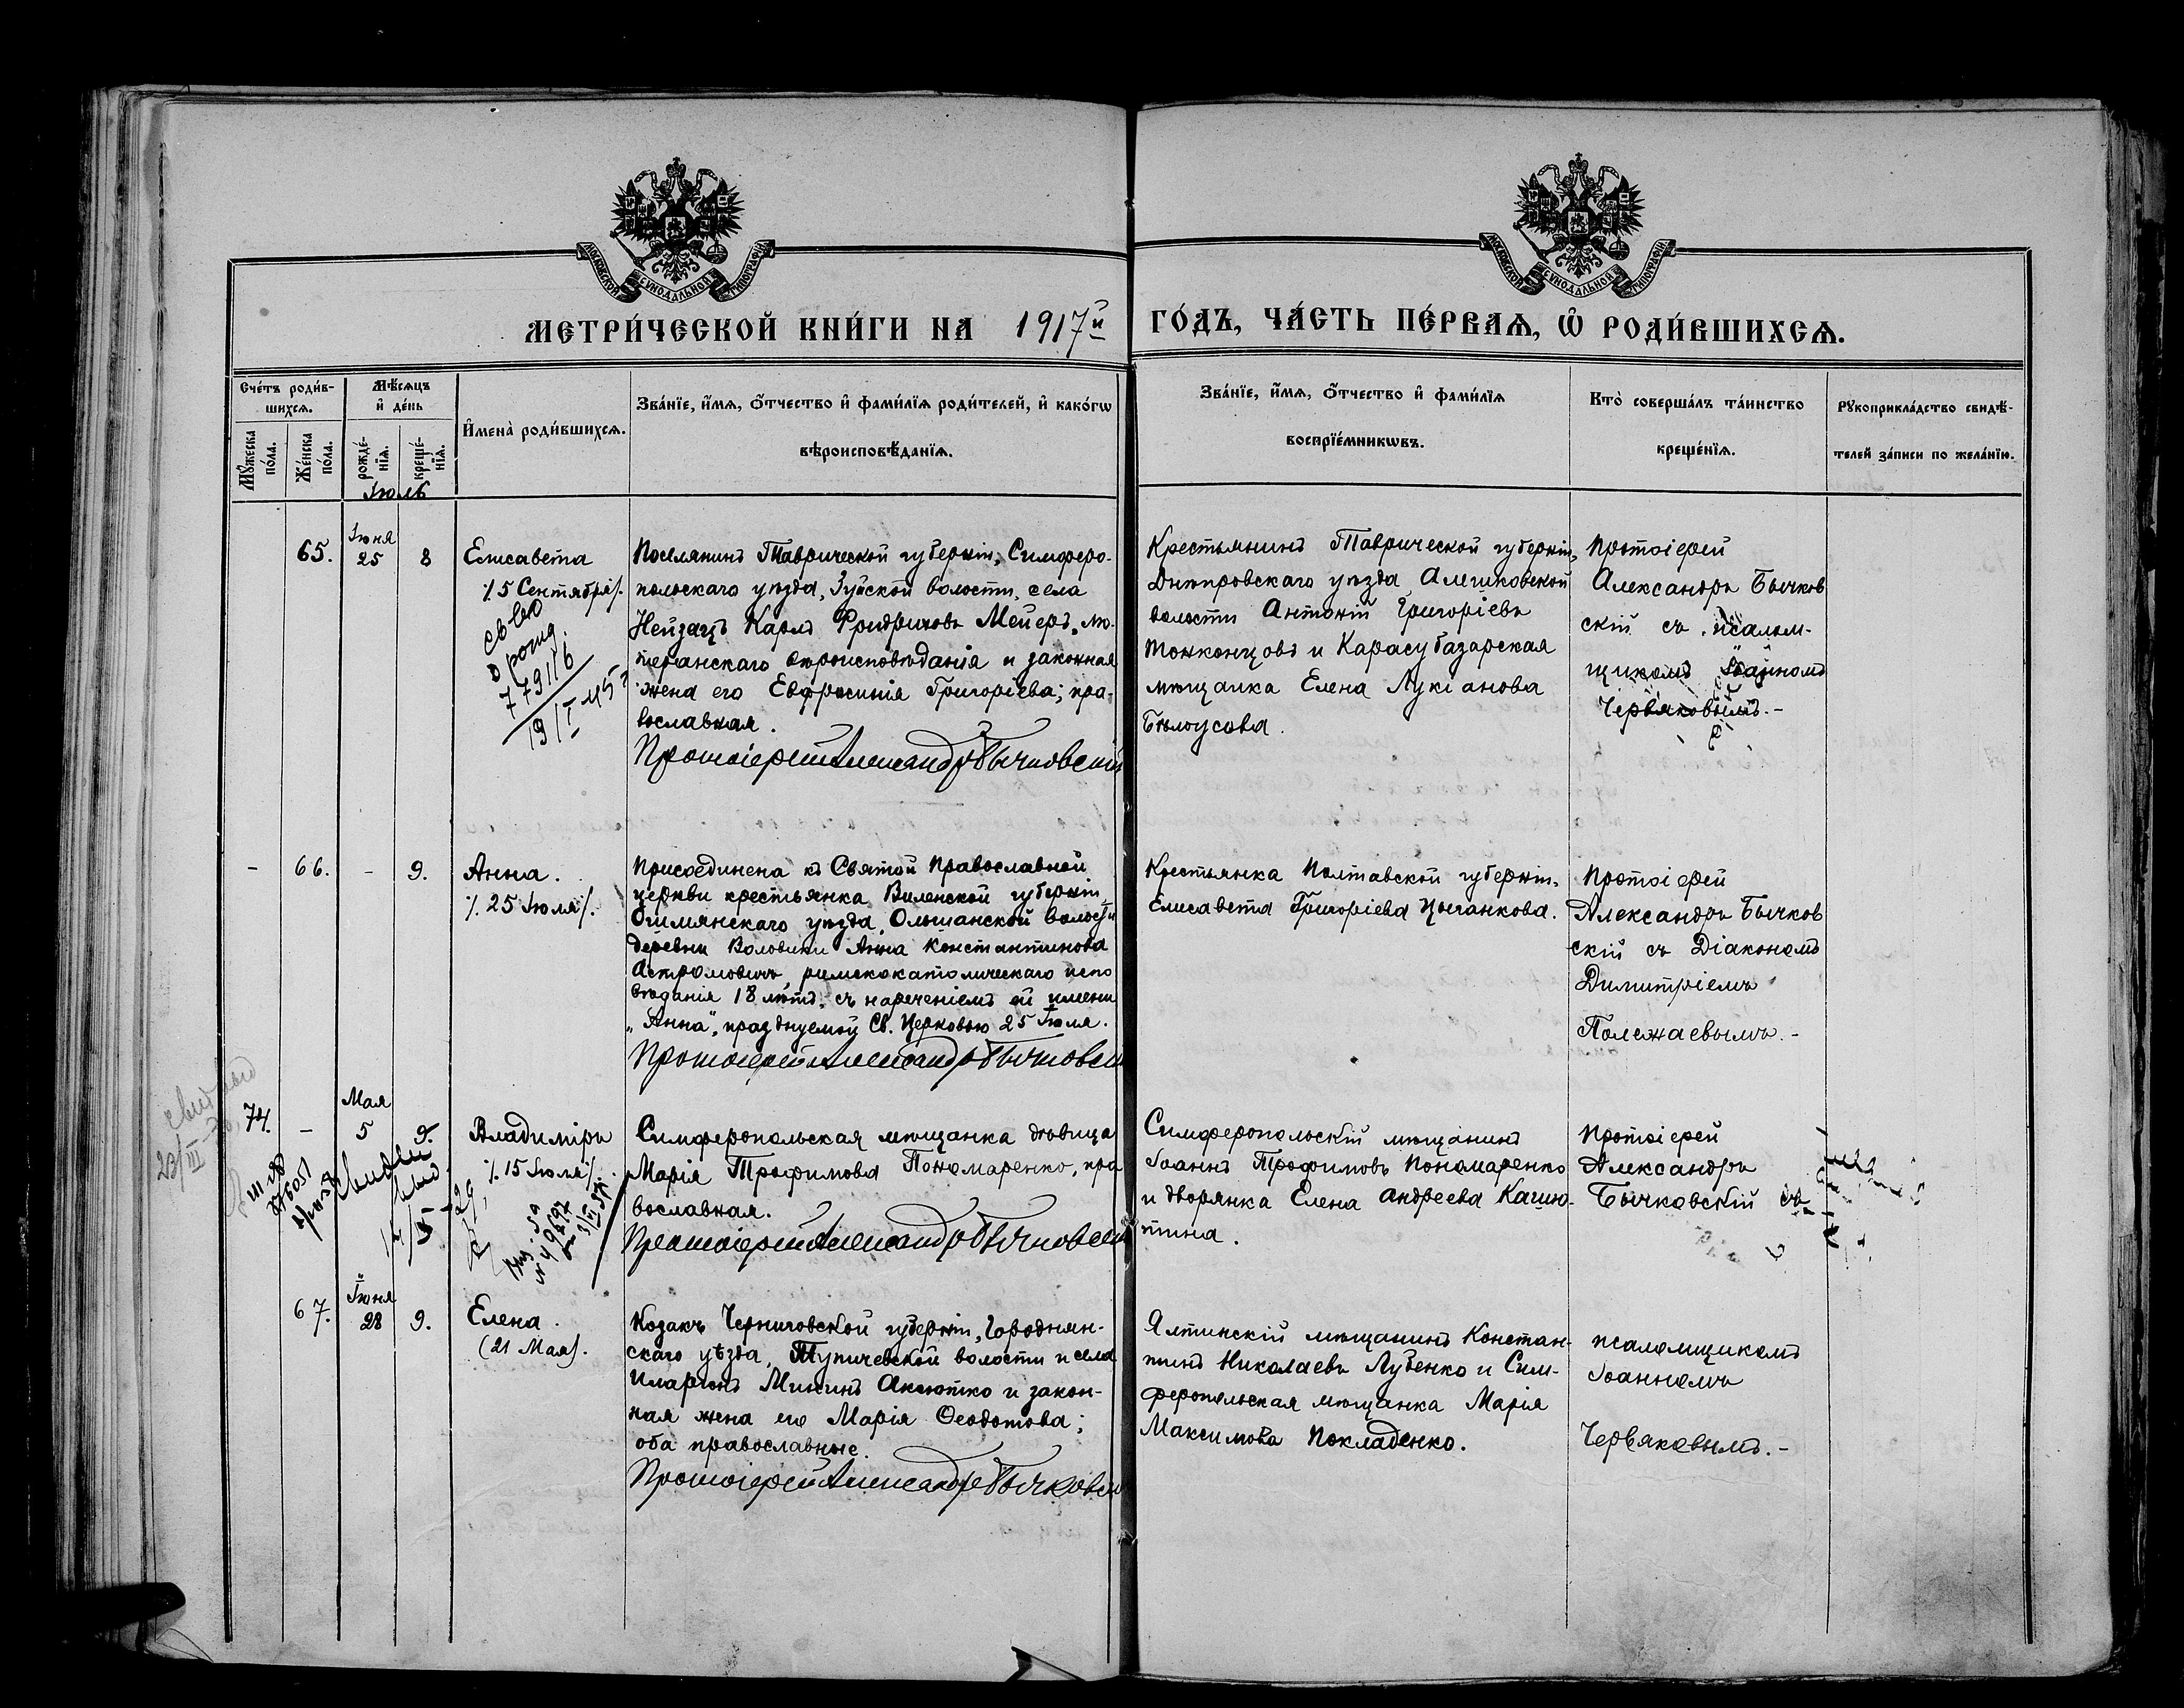 МОСКОВСКОЙ СѴНОДАЛЬНОЙ ТИПОГРАФІИ
МОСКОВСКОЙ СѴНОДАЛЬНОЙ ТИПОГРАФІИ
МЕТРИ́ЧЕСКОЙ КНИ́ГИ НА 1917й ГО́ДЪ, ЧА́СТЬ ПЕ́РВАѦ, Ѡ҆ РОДИ́ВШИХСѦ.
Сче́тъ роди́в-
шихсѧ.
Мꙋ́жеска по́ла.
Же́нска по́ла.
Мѣ́сѧцъ
и҆ де́нь
рожде́-
нїѧ.
креще́-
нїѧ.
И҆мена̀ роди́вшихсѧ.
Зва́нїе, и҆́мѧ, ѻ҆́тчество и҆ фами́лїѧ роди́телей, и҆ како́гѡ
вѣроисповѣ́данїѧ.
Зва́нїе, и҆́мѧ, ѻ҆́тчество и҆ фами́лїѧ
воспрїе́мникѡвъ.
Кто̀ соверша́лъ та́инство
креще́нїѧ.
Рꙋкоприкла́дство свидѣ́-
телей за́писи по жела́нїю.
Іюль
65.
Іюня
25
8
Елисавета
/.5 Сентября/.
св-во
о рожд.
779116
19/I 45 г
Поселянинъ Таврической губерніи, Симферо-
польскаго уѣзда, Зуйской волости, села
Нейзацъ Карлъ Фридриховъ Мейеръ, лю-
теранскаго вѣроисповѣданія и законная
жена его Евфросинія Григоріева; пра-
вославная.
Протоіерей Александръ Бычковскій
Крестьянинъ Таврической губерніи,
Днѣпровскаго уѣзда Алешковской
волости Антоній Григоріевъ
Тонконцовъ и Карасубазарская
мѣщанка Елена Лукіанова
Бѣлоусова.
Протоіерей
Александръ Бычков
скій съ псалом-
щикомъ Іоанномъ
Червяковымъ.-
-
66.
-
9.
Анна.
/.25 Іюля/.
Присоединена къ Святой Православной
церкви крестьянка Виленской губерніи
Ошмянскаго уѣзда, Ольшанской волости
деревни Воловики Анна Константинова
Астромовичъ, римскокатолическаго испо
вѣданія 18 лѣтъ, съ нареченіемъ ей имени
„Анна", празднуемой Св. Церковью 25 Іюля.
Протоіерей Александръ Бычковскій
Крестьянка Полтавской губерніи,
Елисавета Григоріева Цыганкова.
Протоіерей
Александръ Бычков
скій съ Діакономъ
Димитріемъ
Полежаевымъ.-
74.
-
Мая
5
9.
Владиміръ
/.15 Іюля/.
Симферопольская мѣщанка дѣвица
Марія Трофимова Пономаренко, пра
вославная.
Протоіерей Александръ Бычковскій
Симферопольскій мѣщанинъ
Іоаннъ Трофимовъ Пономаренко
и дворянка Елена Андреева Кашю-
тина.
Протоіерей
Александръ
Бычковскій съ
67.
Іюня
28
9.
Елена.
(21 Мая).
Козакъ Черниговской губерніи, Городнян-
скаго уѣзда, Тупичевской волости и села
Иларіонъ Мининъ Аксютко и закон-
ная жена его Марія Ѳеодотова;
оба православные.
Протоіерей Александръ Бычковскій
Ялтинскій мѣщанинъ Констан-
тинъ Николаевъ Лубенко и Сим-
феропольская мѣщанка Марія
Максимова Покладенко.
псаломщикомъ
Іоанномъ
Червяковымъ.-